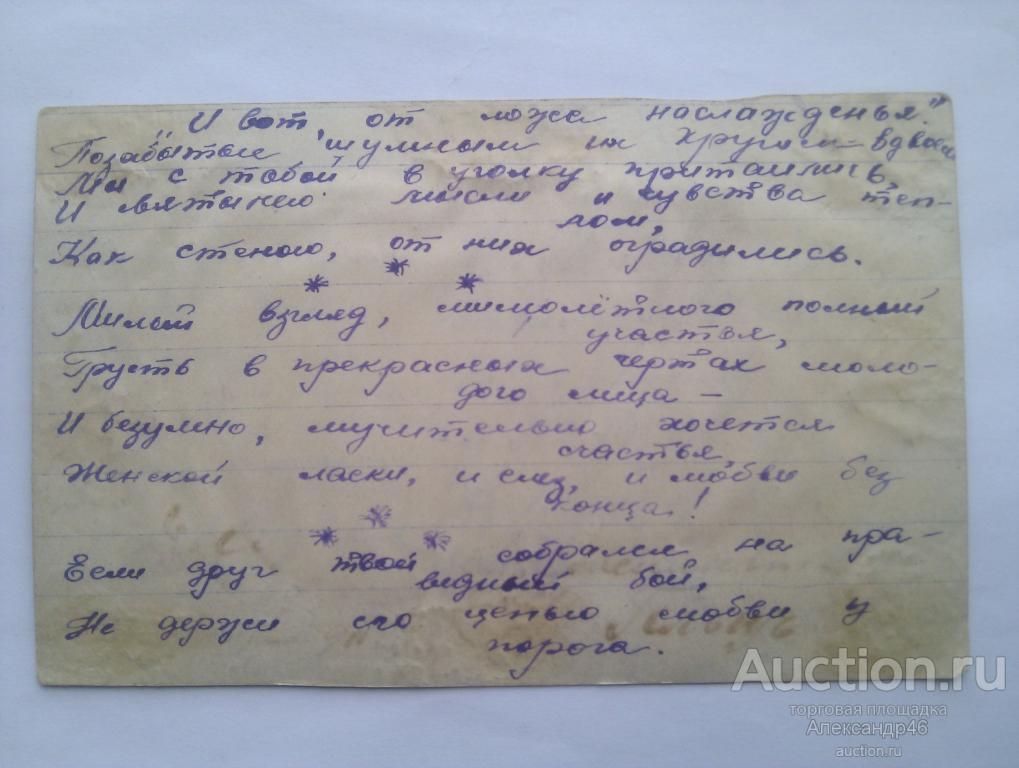 "И вот, от ложа наслажденья."
Позабытые шумным их кругом – вдвоём
Мы с тобой в уголку притаились,
И святынею мысли и чувства теп-
лом,
Как стеною, от них оградились.
* * *
Милый взгляд, мимолётного полный
участья,
Грусть в прекрасных чертах моло-
дого лица –
И безумно, мучительно хочется
счастья,
Женской ласки, и слёз, и любви без
конца!
* * *
Если друг твой собрался на пра-
ведный бой,
Не держи его цепью любви у
порога.
Auction.ru
торговая площадка
Александр46
auction.ru